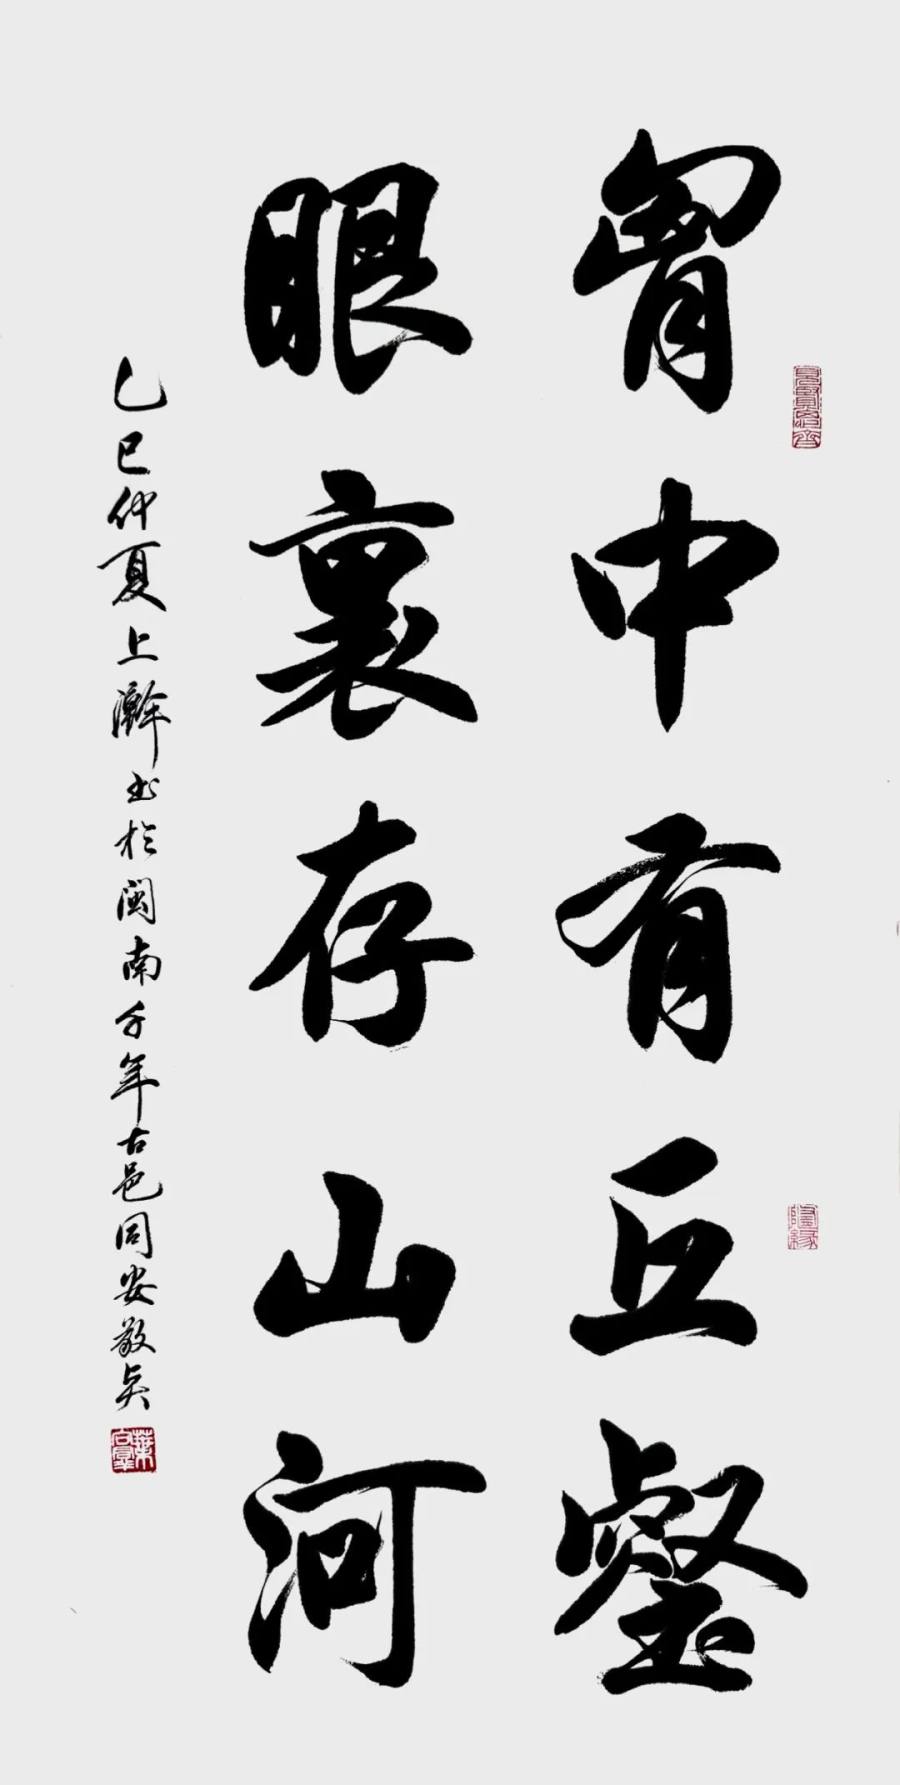 胷中有丘壑
眼裏存山河
乙巳仲夏上澣书於闽南千年古邑同安敬
葉向羣